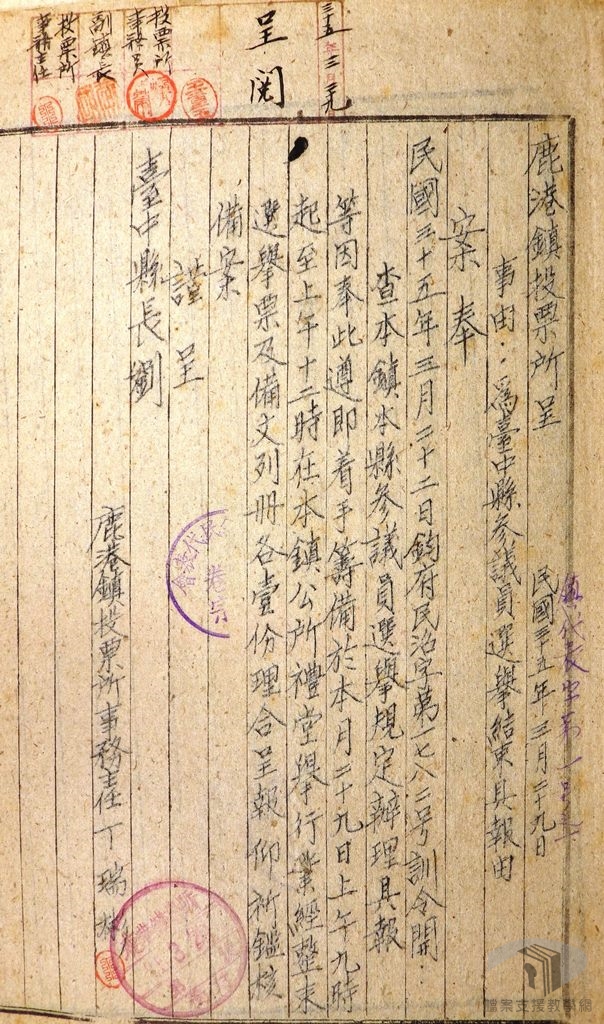 三十五年三月二九
呈閱
投票所
事務員
副鎮長
投票所
事務主任
鎮代表字第一號
鹿港鎮投票所呈　民國三十五年三月二十九日
事由：為臺中縣參議員選舉結束具報由
案奉
民國三十五年三月二十二日鈞府民治字第一七八二号訓令開：
查本鎮本縣參議員選舉規定辦理具報
等因奉此遵即着手籌備於本月二十九日上午九時
起至上午十二時在本鎮公所禮堂舉行業經整束
選舉票及備文列冊各壹份理合呈報仰祈鑑核
備案
謹呈
臺中縣長劉
鹿港鎮投票所事務主任丁瑞
檔案支援教學網